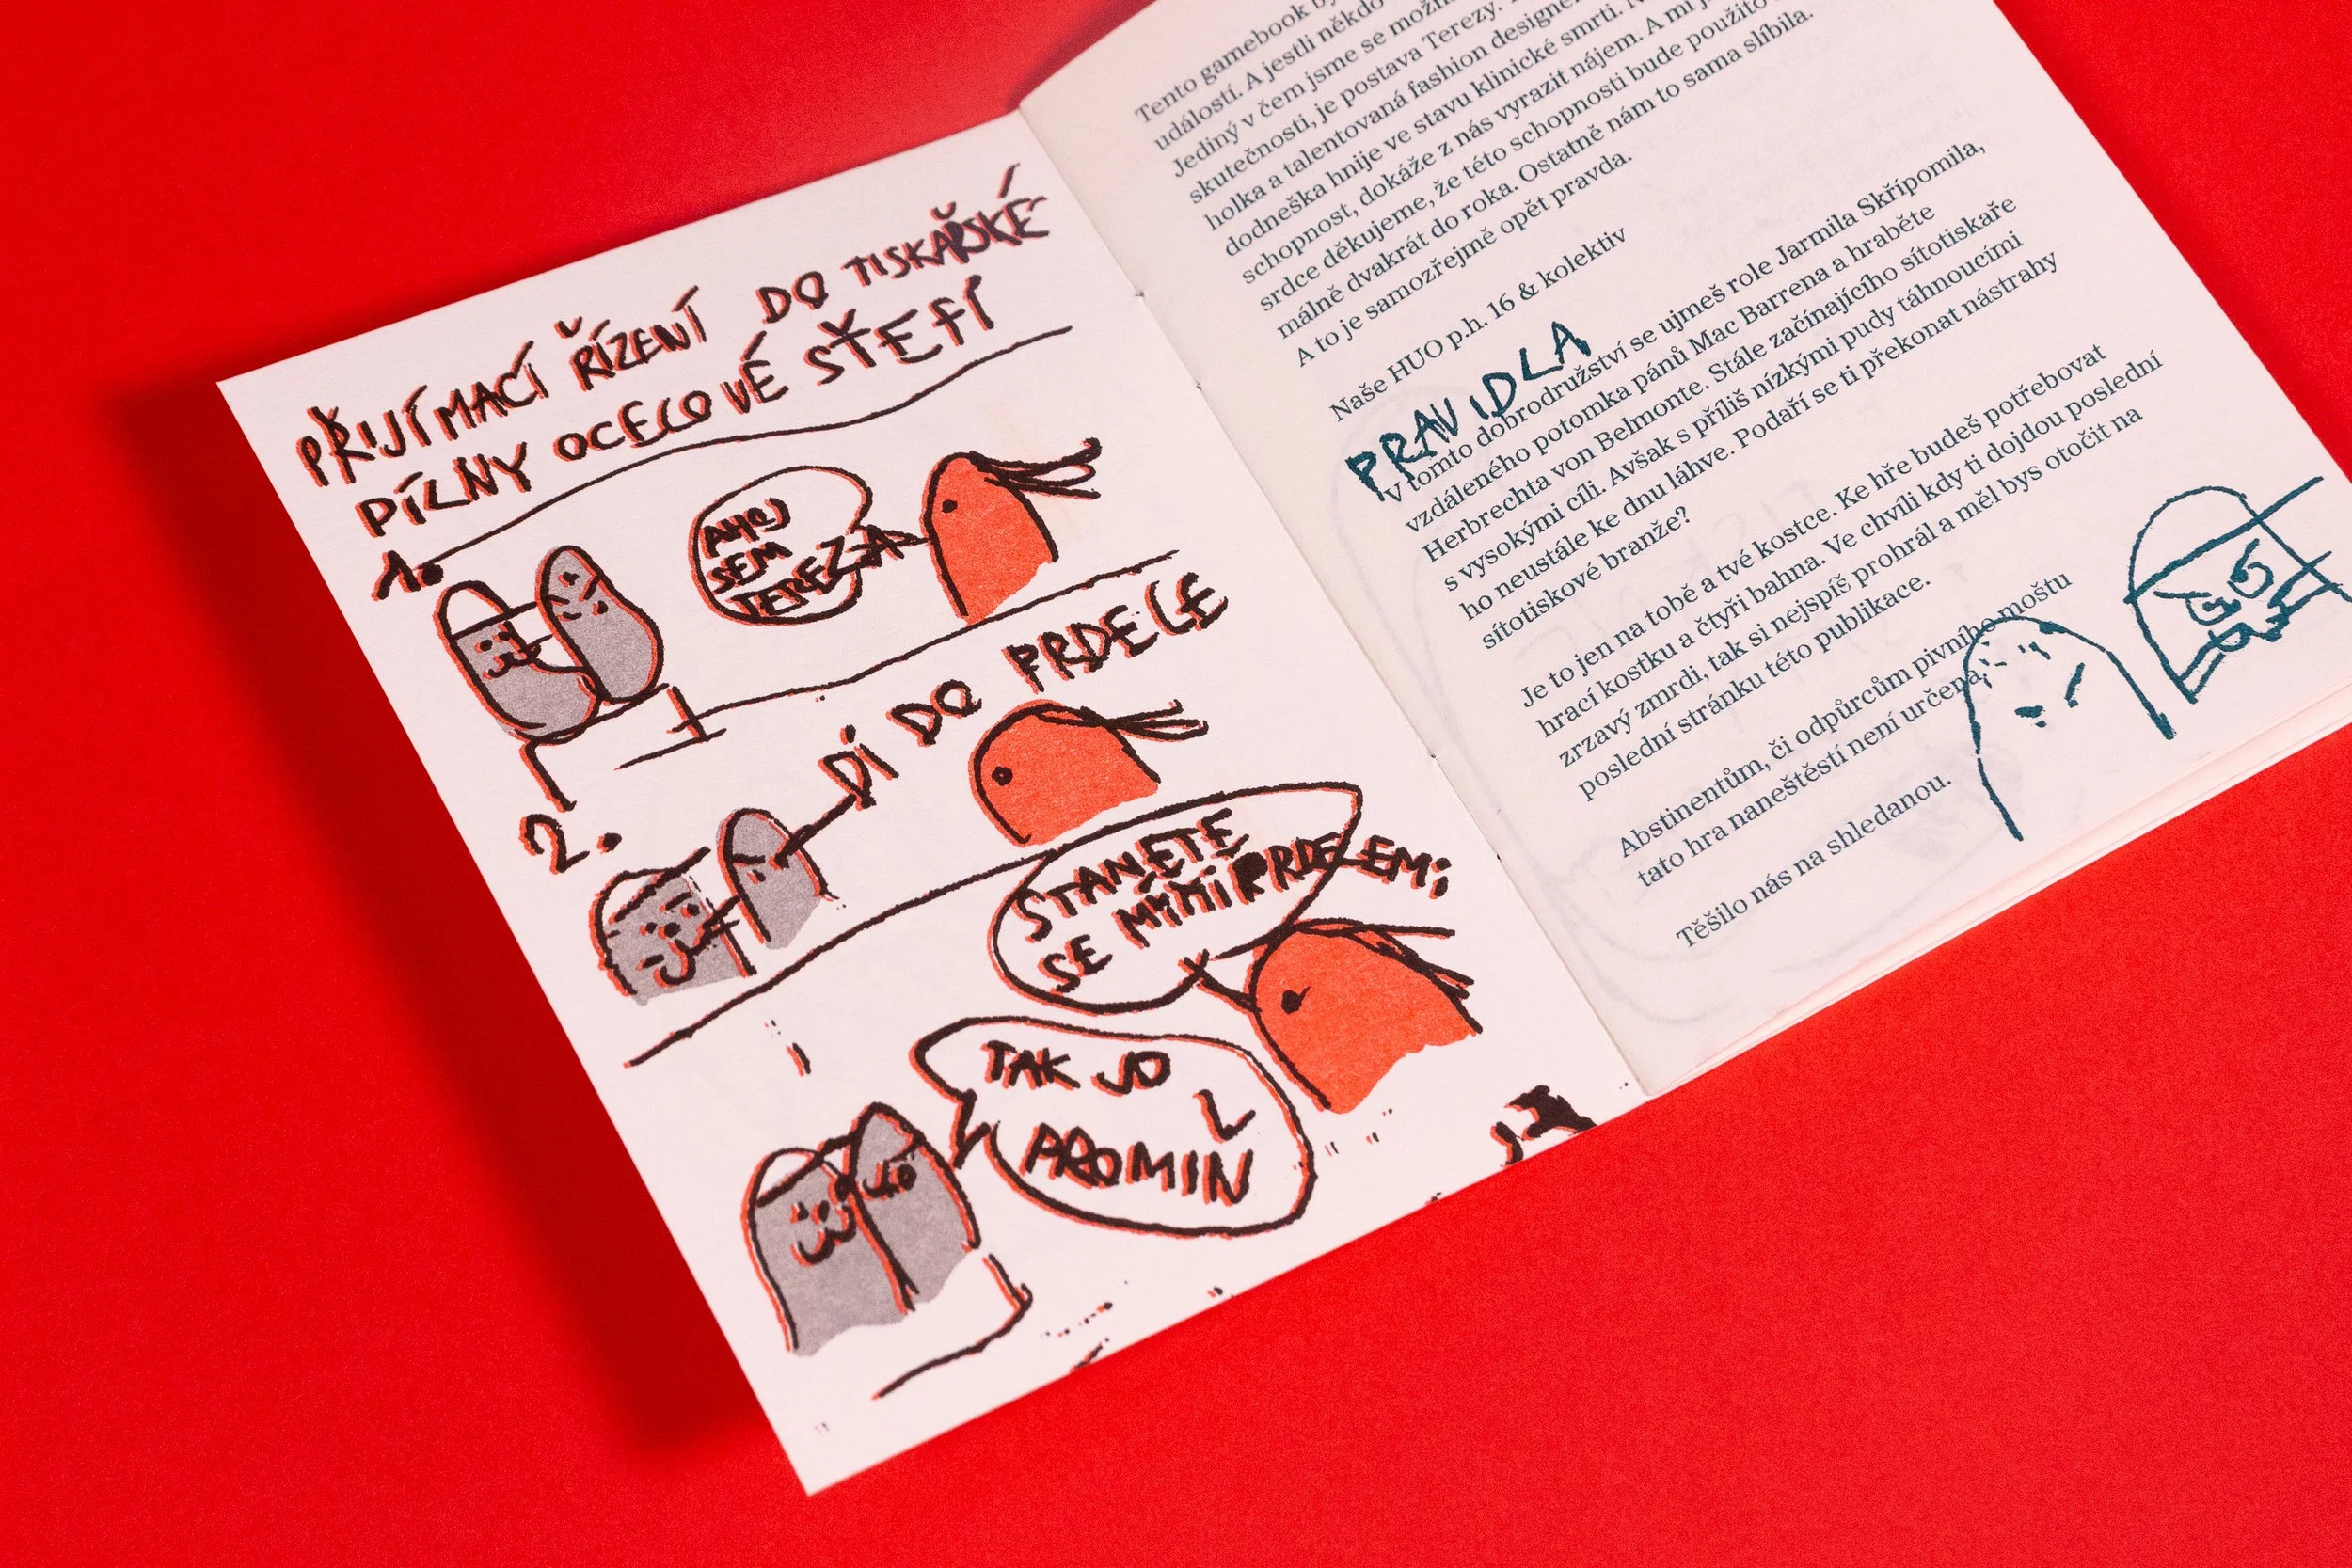 PŘIJÍMACÍ ŘÍZENÍ DO TISKAŘSKÉ
DÍLNY OCELOVÉ STEFI
1.
AHOJ
SEM
TEREZA
2.
DI DO PRDELE
STANETE
SE MÝMI PRDELEMI
TAK JO
PROMIN
Tento gamebook
událostí. A jestli někdo
Jediný v čem jsme se možná
skutečnosti, je postava Terezy.
holka a talentovaná fashion designé
dodneška hnije ve stavu klinické smrti.
schopnost, dokáže z nás vyrazit nájem. A mi
srdce děkujeme, že této schopnosti bude použito
málně dvakrát do roka. Ostatně nám to sama slíbila.
A to je samozřejmě opět pravda.
Naše HUO p.h. 16 & kolektiv
PRAVIDLA
V tomto dobrodružství se ujmeš role Jarmila Skřípomila,
vzdáleného potomka pánů Mac Barrena a hraběte
Herbrechta von Belmonte. Stále začínajícího sítotiskaře
s vysokými cíli. Avšak s příliš nízkými pudy táhnoucími
ho neustále ke dnu láhve. Podaří se ti překonat nástrahy
sítotiskové branže?
Je to jen na tobě a tvé kostce. Ke hře budeš potřebovat
hrací kostku a čtyři bahna. Ve chvíli kdy ti dojdou poslední
zrzavý zmrdi, tak si nejspíš prohrál a měl bys otočit na
poslední stránku této publikace.
Abstinentům, či odpůrcům pivního moštu
tato hra naneštěstí není určená.
Těšilo nás na shledanou.